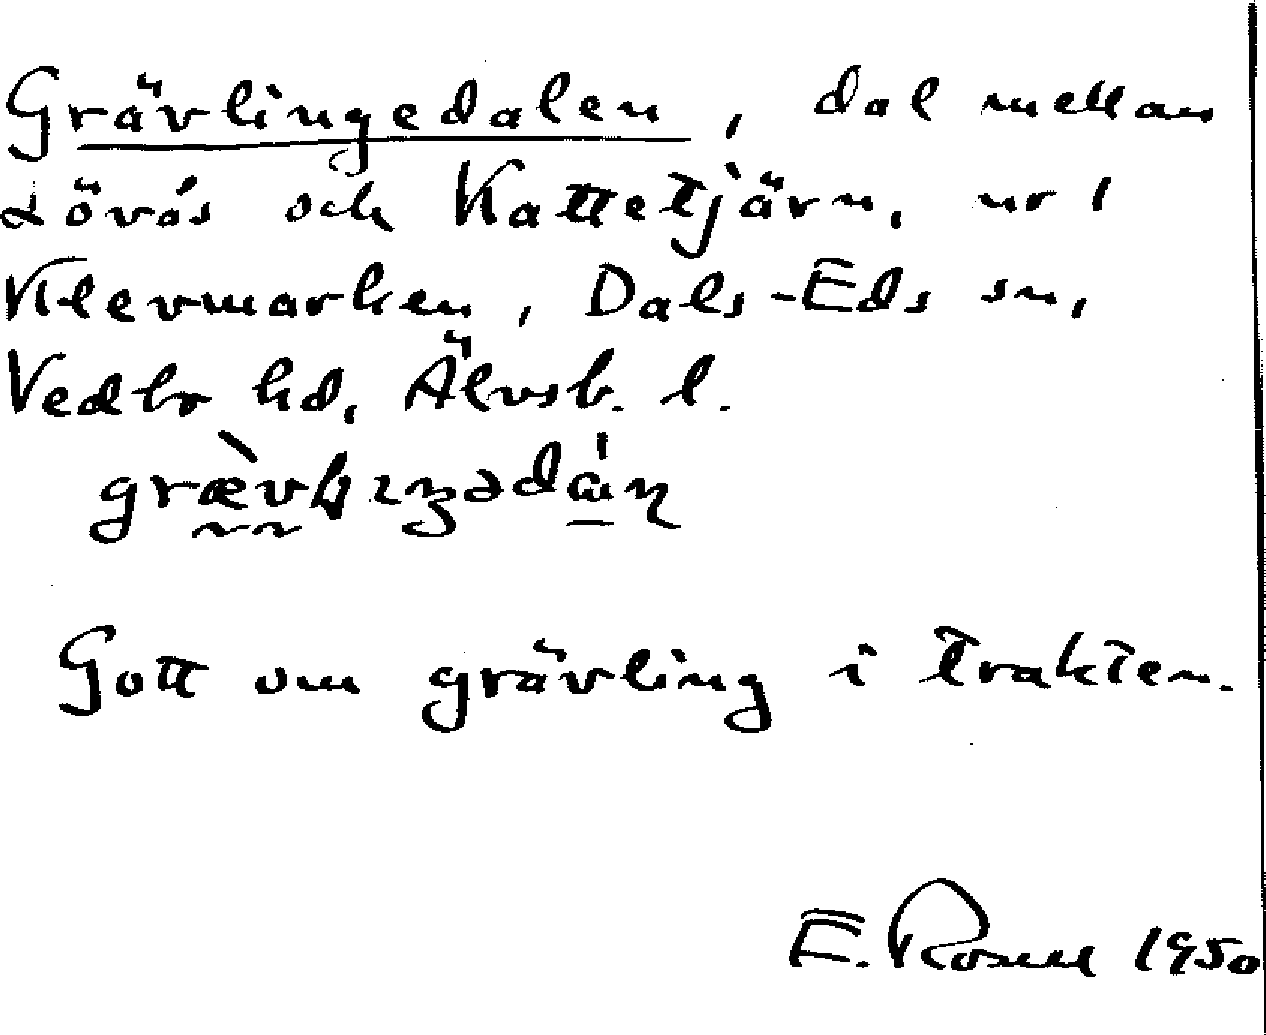 Grävlingedalen, dal mellan
Lövås och Kattetjärn, nr 1
Klevmarken, Dals-Eds sn,
Vedbo hd, Älvsb. l.
Gott om grävling i trakten.
E. Rosell 1950